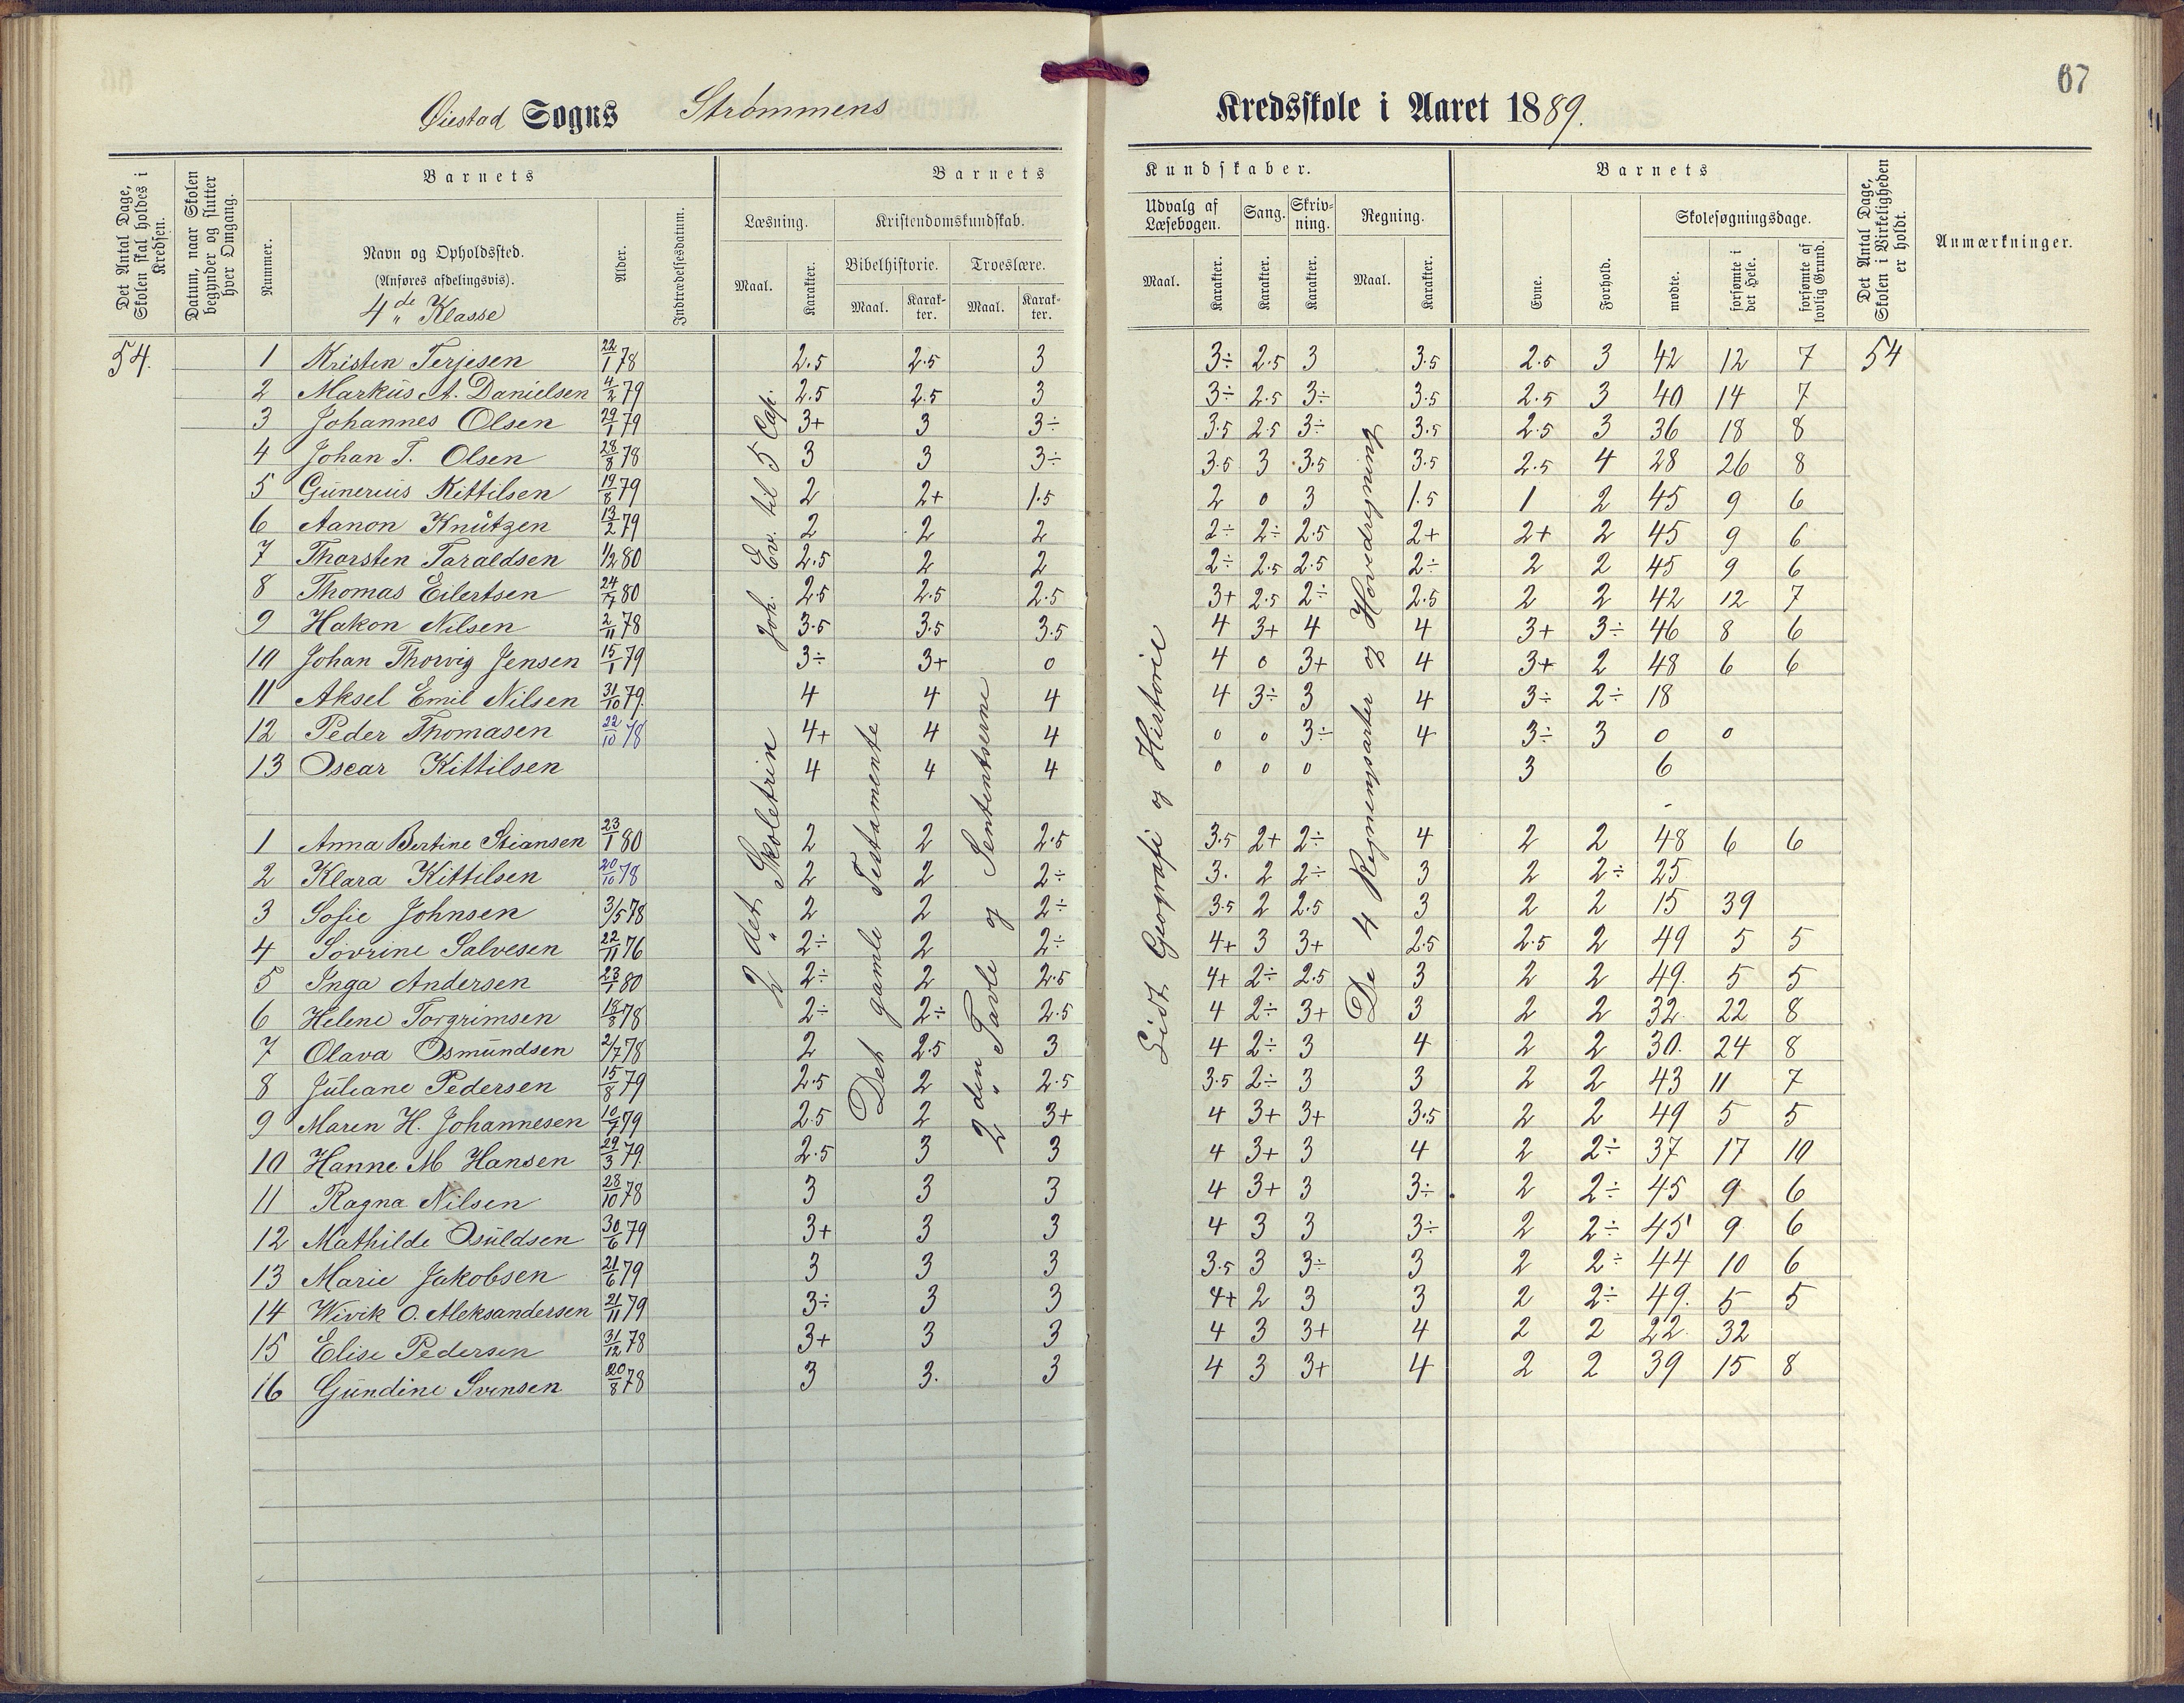 67
Øiestad Sogns Strømmens Kredsskole i Aaret 1889.
Det Antal Dage, Skolen skal holdes i Kredsen.
Datum, naar Skolen begynder og slutter hver Omgang.
Barnets
Nummer.
Navn og Opholdssted.
(Anføres afdelingsvis).
4de Klasse
Alder.
Indtrædelsesdatum.
Barnets Kundskaber.
Læsning.
Maal. Karakter.
Kristendomskundskab.
Bibelhistorie. Troeslære.
Maal. Karak-ter. Maal. Karak-ter.
Udvalg af Læsebogen. Sang. Skriv-ning. Regning.
Maal. Karakter. Karakter. Karakter. Maal. Karakter.
Barnets
Evne. Forhold.
Skolesøgningsdage.
mødte. forsømte i det Hele. forsømte af lovlig Grund.
Det Antal Dage, Skolen i Virkeligheden er holdt.
Anmærkninger.
54. 1 Kristen Terjesen 22/1 78 2.5 2.5 3 3÷ 2.5 3 3.5 2.5 3 42 12 7 54
2 Markus A. Danielsen 4/2 79 2.5 2.5 3 3÷ 2.5 3÷ 3.5 2.5 3 40 14 7
3 Johannes Olsen 29/1 79 3+ 3 3÷ 3.5 2.5 3÷ 3.5 2.5 3 36 18 8
4 Johan T. Olsen 28/8 78 3 3 3÷ 3.5 3 3.5 3.5 2.5 4 28 26 8
5 Gunerius Kittilsen 19/8 79 2 2+ 1.5 2 0 3 1.5 1 2 45 9 6
6 Aanon Knutzen 13/2 79 2 2 2 2÷ 2÷ 2.5 2+ 2+ 2 45 9 6
7 Thorsten Taraldsen 1/2 80 2.5 2 2 2÷ 2.5 2.5 2÷ 2 2 45 9 6
8 Thomas Eilertsen 24/7 80 2.5 2.5 2.5 3+ 2.5 2÷ 2.5 2 2 42 12 7
9 Hakon Nilsen 2/11 78 3.5 3.5 3.5 4 3+ 4 4 3+ 3÷ 46 8 6
10 Johan Thorvig Jensen 15/1 79 3÷ 3+ 0 4 0 3+ 4 3+ 2 48 6 6
11 Aksel Emil Nilsen 31/10 79. 4 4 4 4 3÷ 3 4 3÷ 2÷ 18
12 Peder Thomasen 22/10 78 4+ 4 4 0 0 3÷ 4 3÷ 3 0 0
13 Oscar Kittilsen 4 4 4 0 0 0 3 6
1 Anna Bertine Stiansen 23/1 80 2 2 2.5 3.5 2+ 2÷ 4 2 2 48 6 6
2 Klara Kittilsen 20/10 78 2 2 2÷ 3. 2 2÷ 3 2 2÷ 25
3 Sofie Johnsen 3/5 78 2 2 2÷ 3.5 2 2.5 3 2 2 15 39
4 Sovrine Salvesen 22/11 76 2÷ 2 2÷ 4+ 3 3+ 2.5 2.5 2 49 5 5
5 Inga Andersen 23/1 80 2÷ 2 2.5 4+ 2÷ 2.5 3 2 2 49. 5 5
6 Helene Torgrimsen 18/8 78 2÷ 2÷ 2.5 4 2÷ 3+ 3 2 2 32 22 8
7 Olava Osmundsen 2/7 78 2 2.5 3 4 2÷ 3 4 2 2 30. 24 8
8 Juliane Pedersen 15/8 79 2.5 2 2.5 3.5 2÷ 3 3 2 2 43 11 7
9 Maren H. Johannesen 10/7 79 2.5 2 3+ 4 3+ 3+ 3.5 2 2 49 5 5
10 Hanne M Hansen 29/3 79. 2.5 3 3 4 3+ 3 4 2 2÷ 37 17 10
11 Ragna Nilsen 28/10 78 3 3 3 4 3+ 3 3÷ 2 2÷ 45 9 6
12 Mathilde Osuldsen 30/6 79 3+ 3 3 4 3 3 3÷ 2 2÷ 45 9 6
13 Marie Jakobsen 21/6 79 3 3 3 3.5 3 3÷ 3 2 2÷ 44 10 6
14 Wivik O. Aleksandersen 21/11 79 3÷ 3 3 4+ 2 3 3 2 2÷ 49. 5 5
15 Elise Pedersen 31/12 78 3+ 3 3 4 3 3+ 4 2 2 22. 32
16 Gundine Svensen 20/8 78 3 3. 3 4 3 3+ 4 2 2 39 15 8
2det Skoletrin Joh. Ev. til 5 Cap.
Det gamle Testamente
2den Tavle og Sententserne
Lidt Geografi og Historie
De 4 Regningsarter og Hovedregning